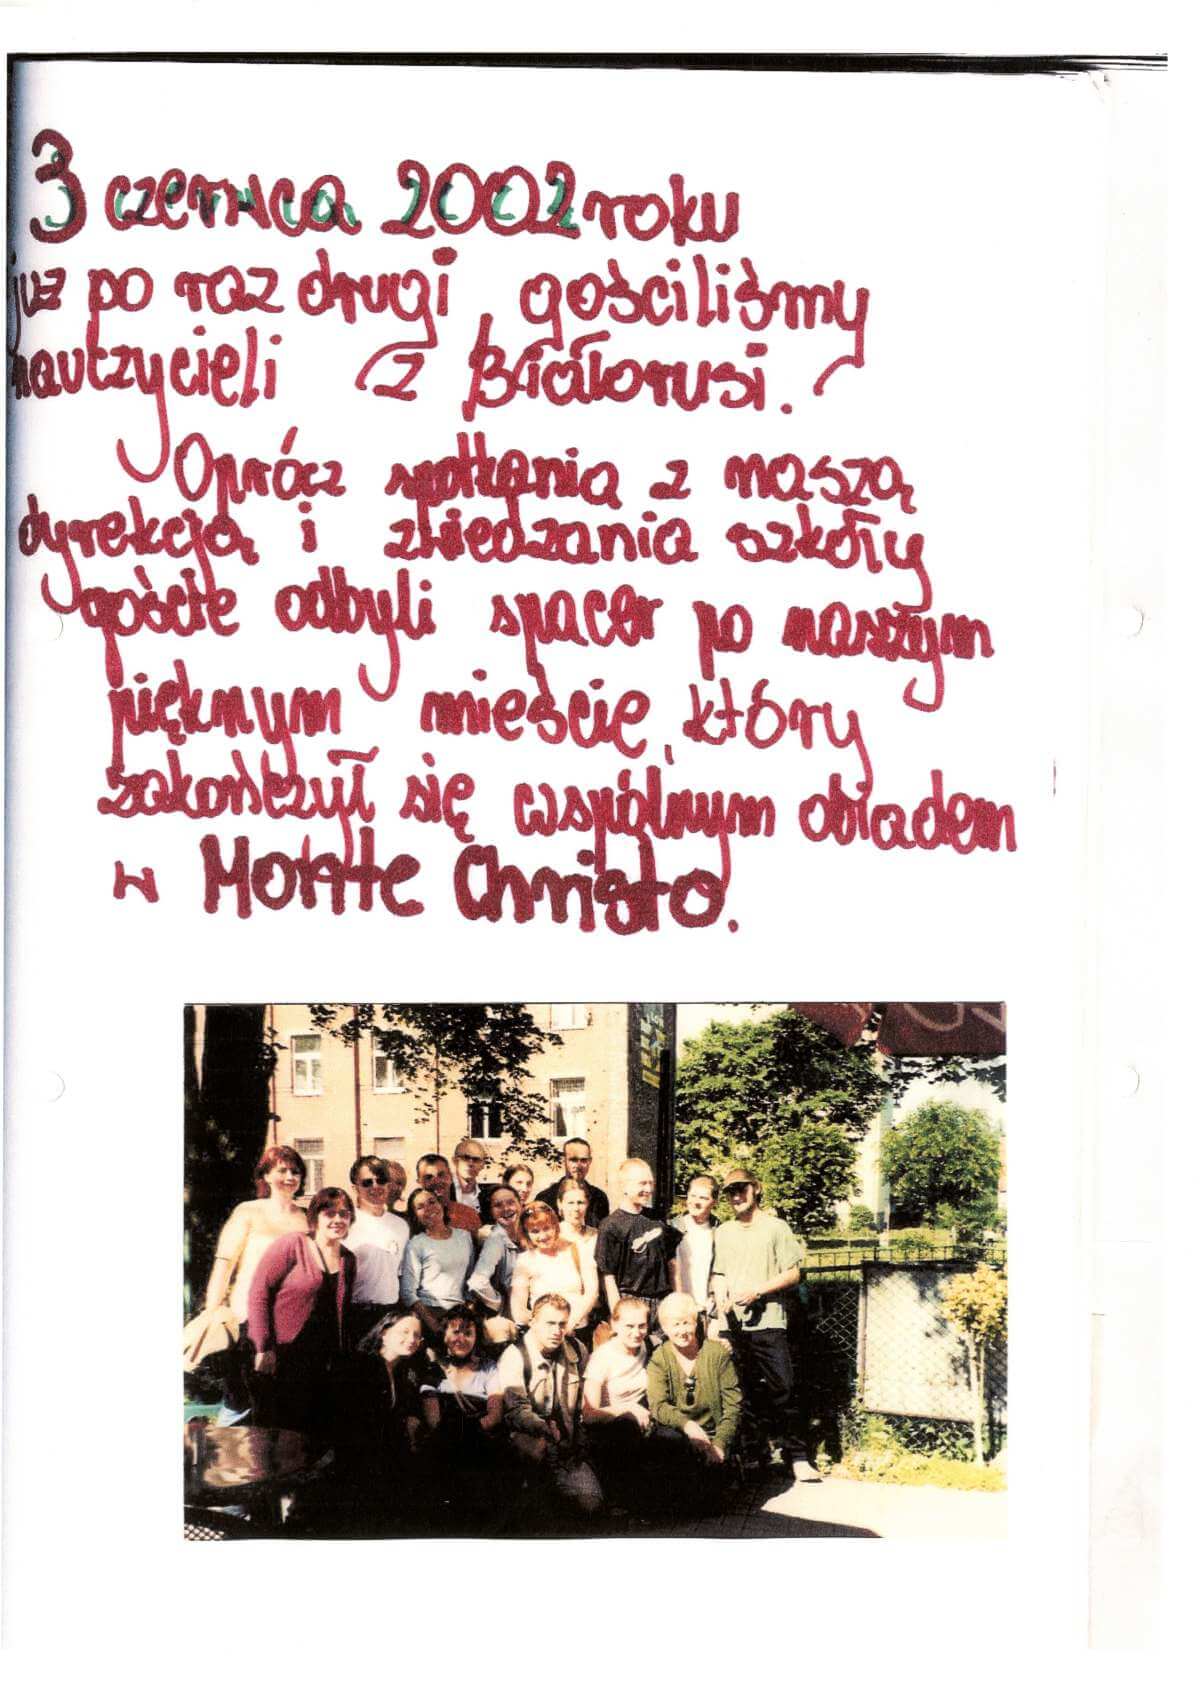 3 czerwca 2002 roku
już po raz drugi gościliśmy
nauczycieli z Białorusi.
Oprócz spotkania z naszą
dyrekcją i zwiedzania szkoły
goście odbyli spacer po naszym
pięknym mieście, który
zakończył się wspólnym obiadem
w Monte Christo.